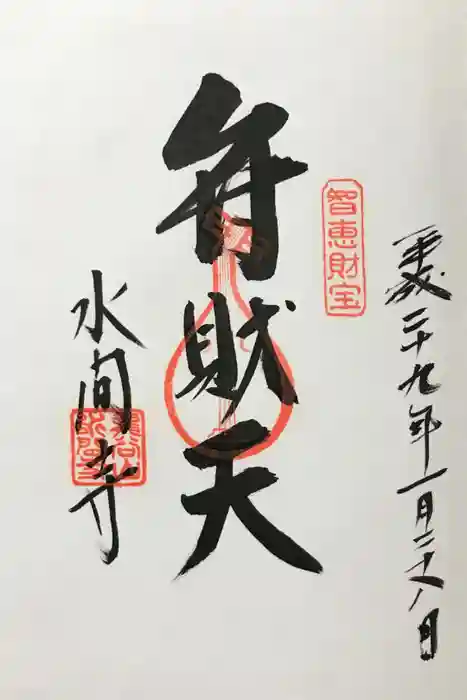 平成二十九年一月二十八日
智恵財宝
弁財天
水間寺